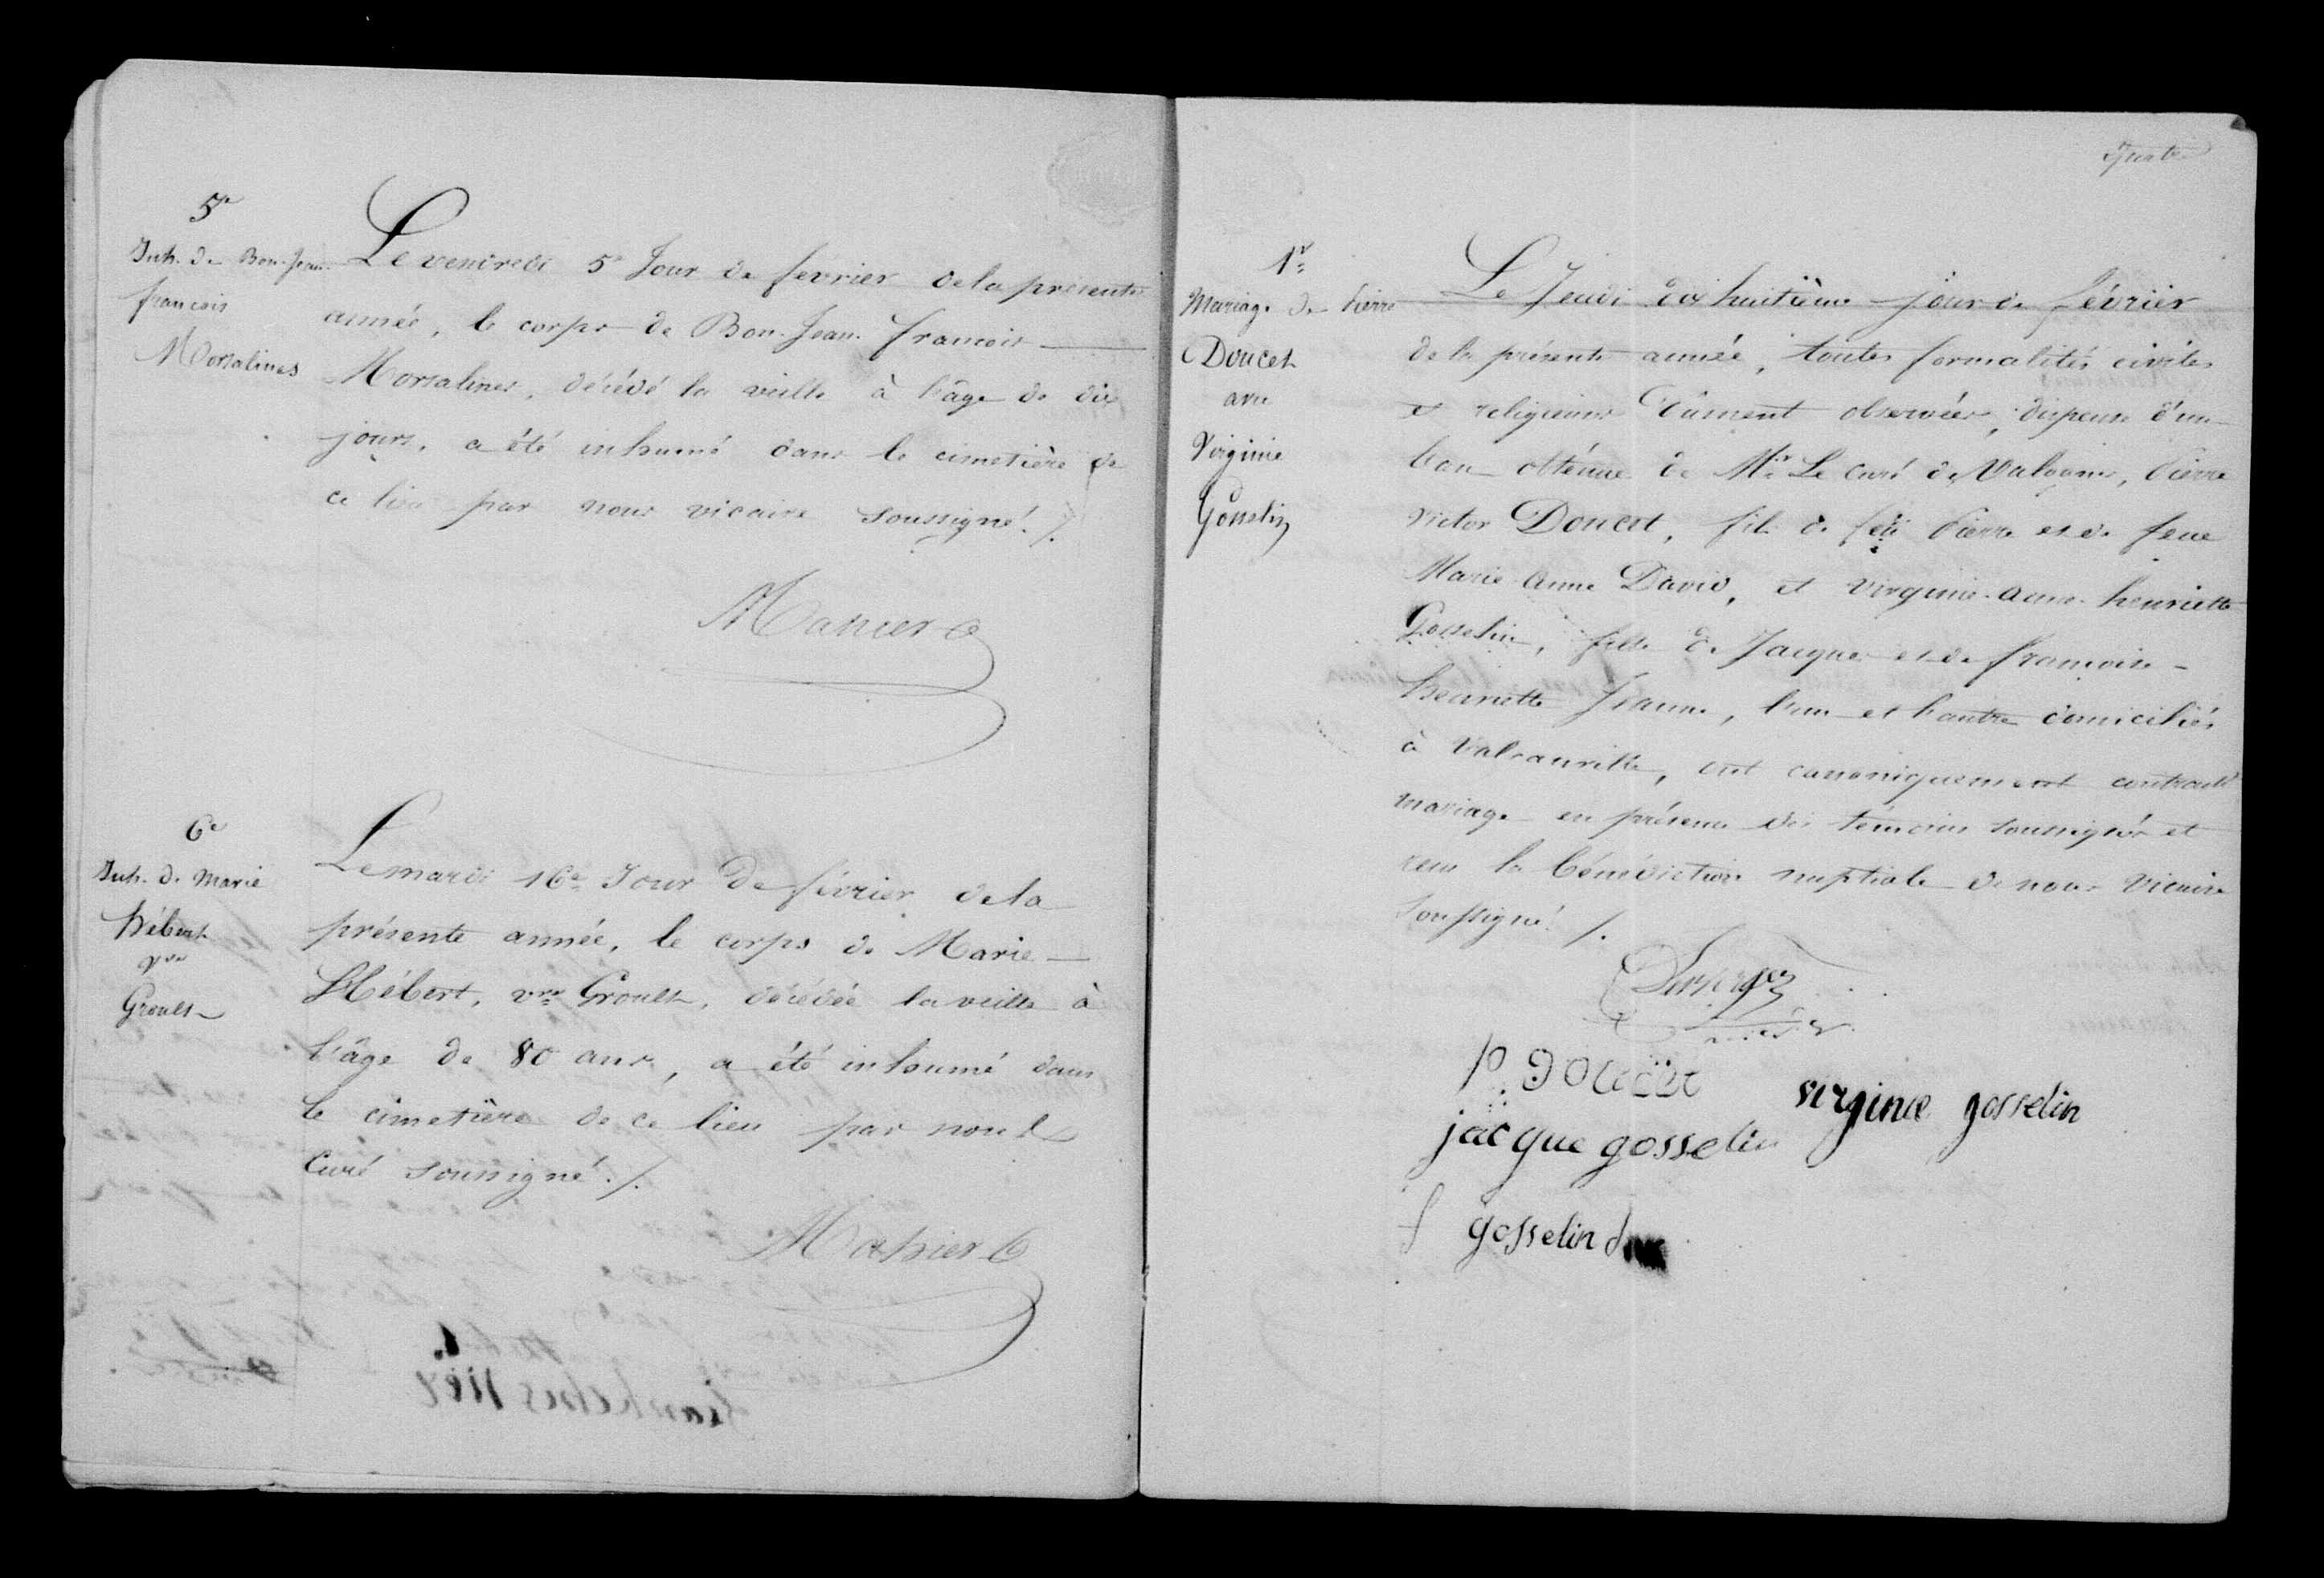 5e
Inh. de Bon-Jean
francois
Morsalines
Le vendredi 5e Jour de fevrier de la presente
année, le corps de Bon-Jean francois
Morsalines, décédé la veille à l'âge de dix
jours, a été inhumé dans le cimetière de
ce lieu par nous vicaire soussigné ./.
Mahier
6e
Inh. de Marie
hébert
vve
Groult
Le mardi 16e Jour de février de la
présente année, le corps de Marie
Hébert, vve Groult, décédée la veille à
l'âge de 80 ans, a été inhumé dans
le cimetière de ce lieu par nous
Curé soussigné ./.
Mahier
quatre
1r
Mariage de Pierre
Doucet
avec
Virginie
Gosselin
Le Jeudi dix huitième jour de février
de la présente année, toutes formalités civiles
et religieuses dûment observées, dispense d'un
ban obtenue de Mr Le Curé de Valognes, Pierre
Victor Doucet, fils de feu Pierre et de feue
Marie Anne David, et Virginie-Anne-henriette
Gosselin, fille de Jacques et de françoise-
henriette Jeanne, l'un et l'autre domiciliés
à Valcanville, ont canoniquement contracté
mariage en présence des témoins soussignés et
reçu la bénédiction nuptiale de nous Vicaire
soussigné ./.
p. doucet
virginie gosselin
jacque gosselin
f gosselin